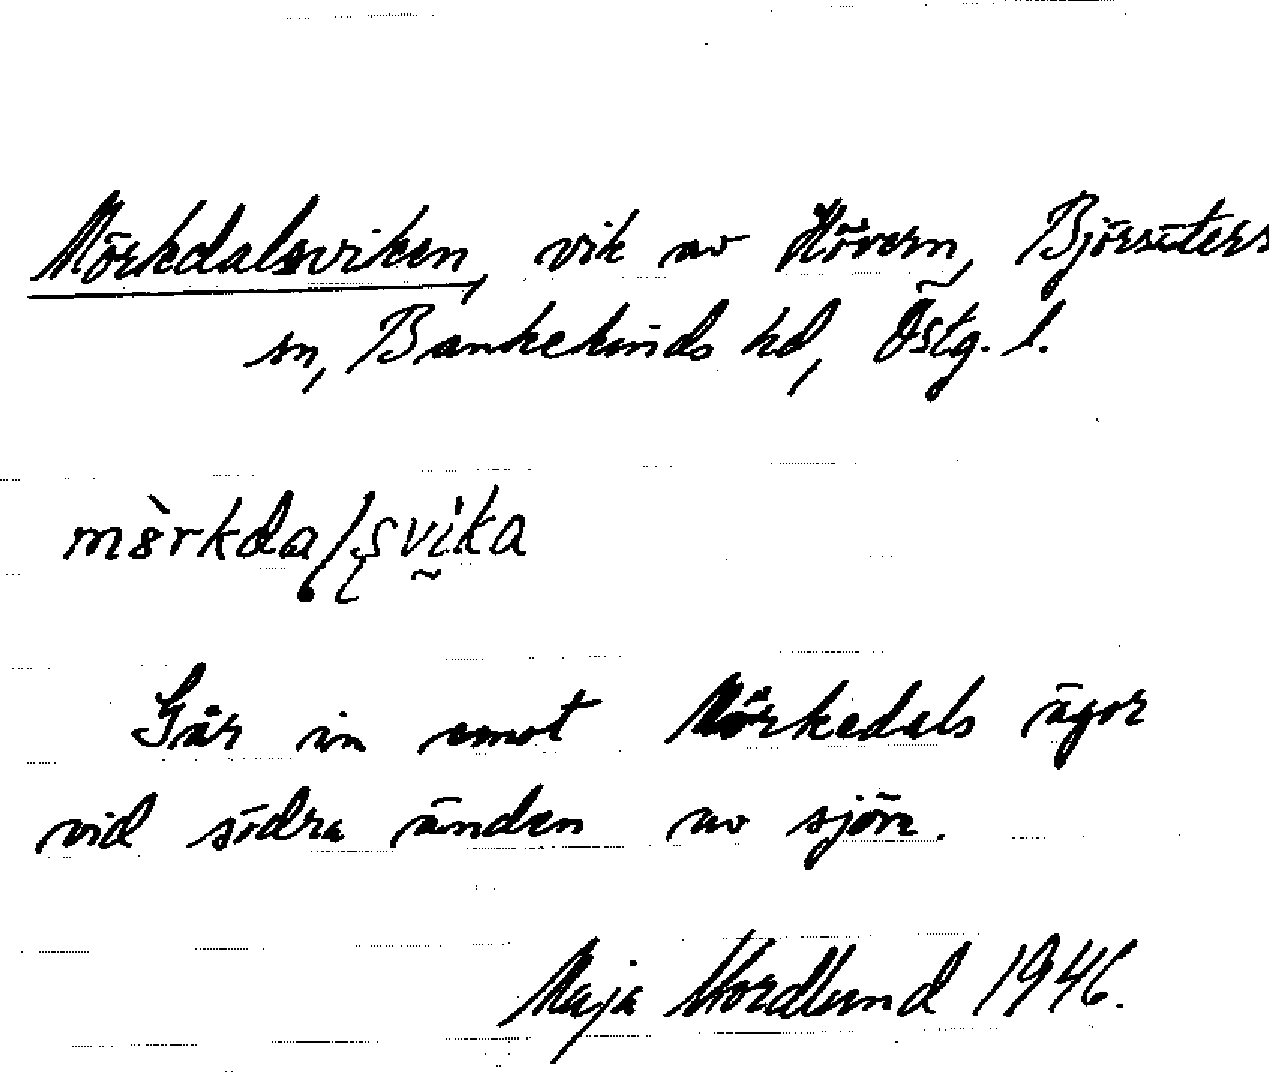 Mörkdalsviken, vik av Hövern, Björsäters
sn, Bankekinds hd, Östg. l.
mèrkdalsvi̇ka
Går in emot Mörkedals ägor
vid södra änden av sjön.
Maja Nordlund 1946.